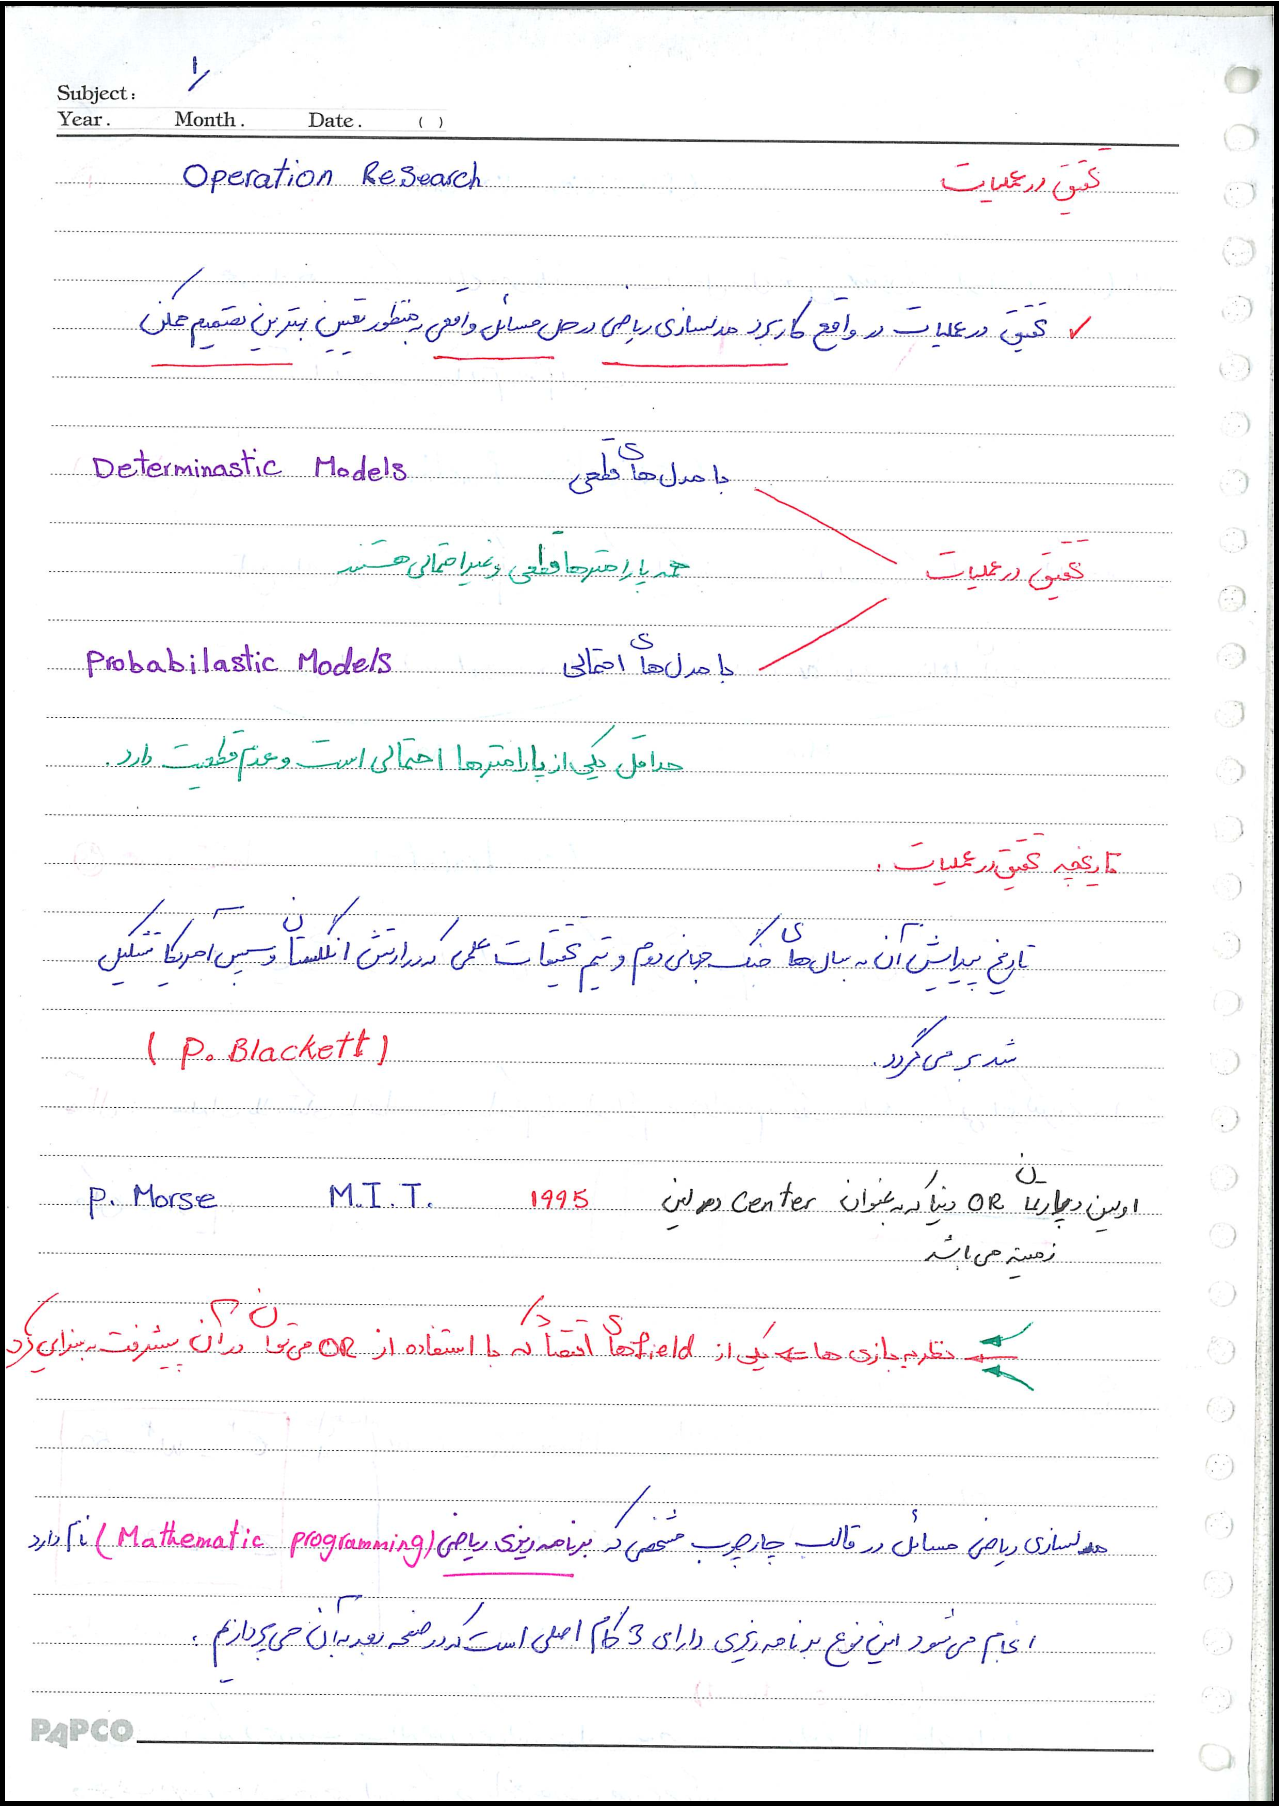 ۱/
Subject:
Year. Month. Date. ( )
تحقیق در عملیات Operation ReSearch
✓ تحقیق در عملیات در واقع کاربرد مدلسازی ریاضی در حل مسائل واقعی به منظور تعیین بهترین تصمیم ممکن
با مدل‌های قطعی Determinastic Models
تحقیق در عملیات همه پارامترها قطعی و غیر احتمالی هستند
با مدل‌های احتمالی Probabilastic Models
حداقل یکی از پارامترها احتمالی است و عدم قطعیت دارد.
تاریخچه تحقیق در عملیات.
تاریخ پیدایش آن به سال‌های جنگ جهانی دوم و تیم تحقیقات علمی که در ارتش انگلستان و سپس آمریکا تشکیل
شد بر می گردد. (P. Blackett)
اولین دپارتمان OR دنیا که به عنوان center در این 1995 M.I.T. P. Morse
زمینه می باشد
نظریه بازی ها ← یکی از fieldهای اقتصاد که با استفاده از OR می‌توان در آن پیشرفت به سزایی کرد
مدلسازی ریاضی مسائل در قالب چارچوب مشخصی که برنامه ریزی ریاضی (Mathematic programming) نام دارد
انجام می شود این نوع برنامه ریزی دارای 3 گام اصلی است که در صفحه بعد به آن می پردازیم.
PAPCO